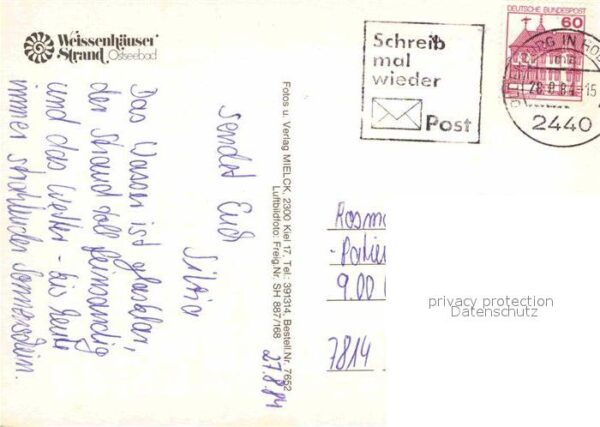 Weissenhäuser
Strand Ostseebad
Das Wasser ist glasklar,
der Strand toll feinsandig
und das Wetter - bis heute
immer strahlender Sonnenschein.
sendet Euch
Silvia
27.8.84
Fotos u. Verlag MIELCK, 2300 Kiel 17, Tel.: 391314, Bestell.Nr. 7652
Luftbildfoto: Freig.Nr. SH 887/168
Schreib
mal
wieder
Post
DEUTSCHE BUNDESPOST
60
BURG IN HOL
28.8.84-15
2440
9.00
7814
privacy protection
Datenschutz